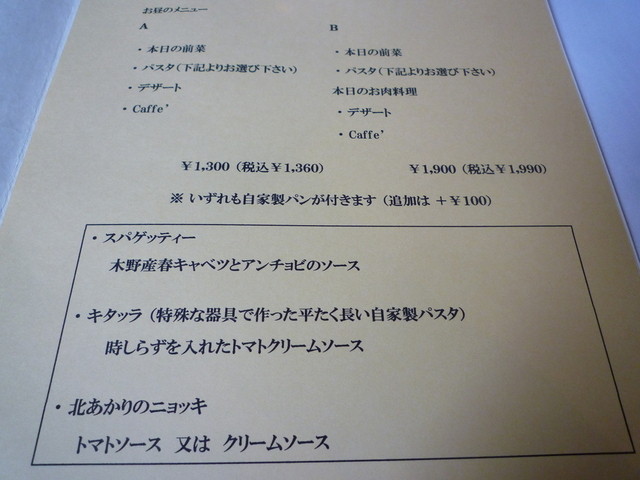 お昼のメニュー
A
・本日の前菜
・パスタ（下記よりお選び下さい）
・デザート
・Caffe’
￥1,300（税込￥1,360）
B
・本日の前菜
・パスタ（下記よりお選び下さい）
本日のお肉料理
・デザート
・Caffe’
￥1,900（税込￥1,990）
※ いずれも自家製パンが付きます（追加は ＋￥100）
・スパゲッティー
木野産春キャベツとアンチョビのソース
・キタッラ（特殊な器具で作った平たく長い自家製パスタ）
時しらずを入れたトマトクリームソース
・北あかりのニョッキ
トマトソース 又は クリームソース